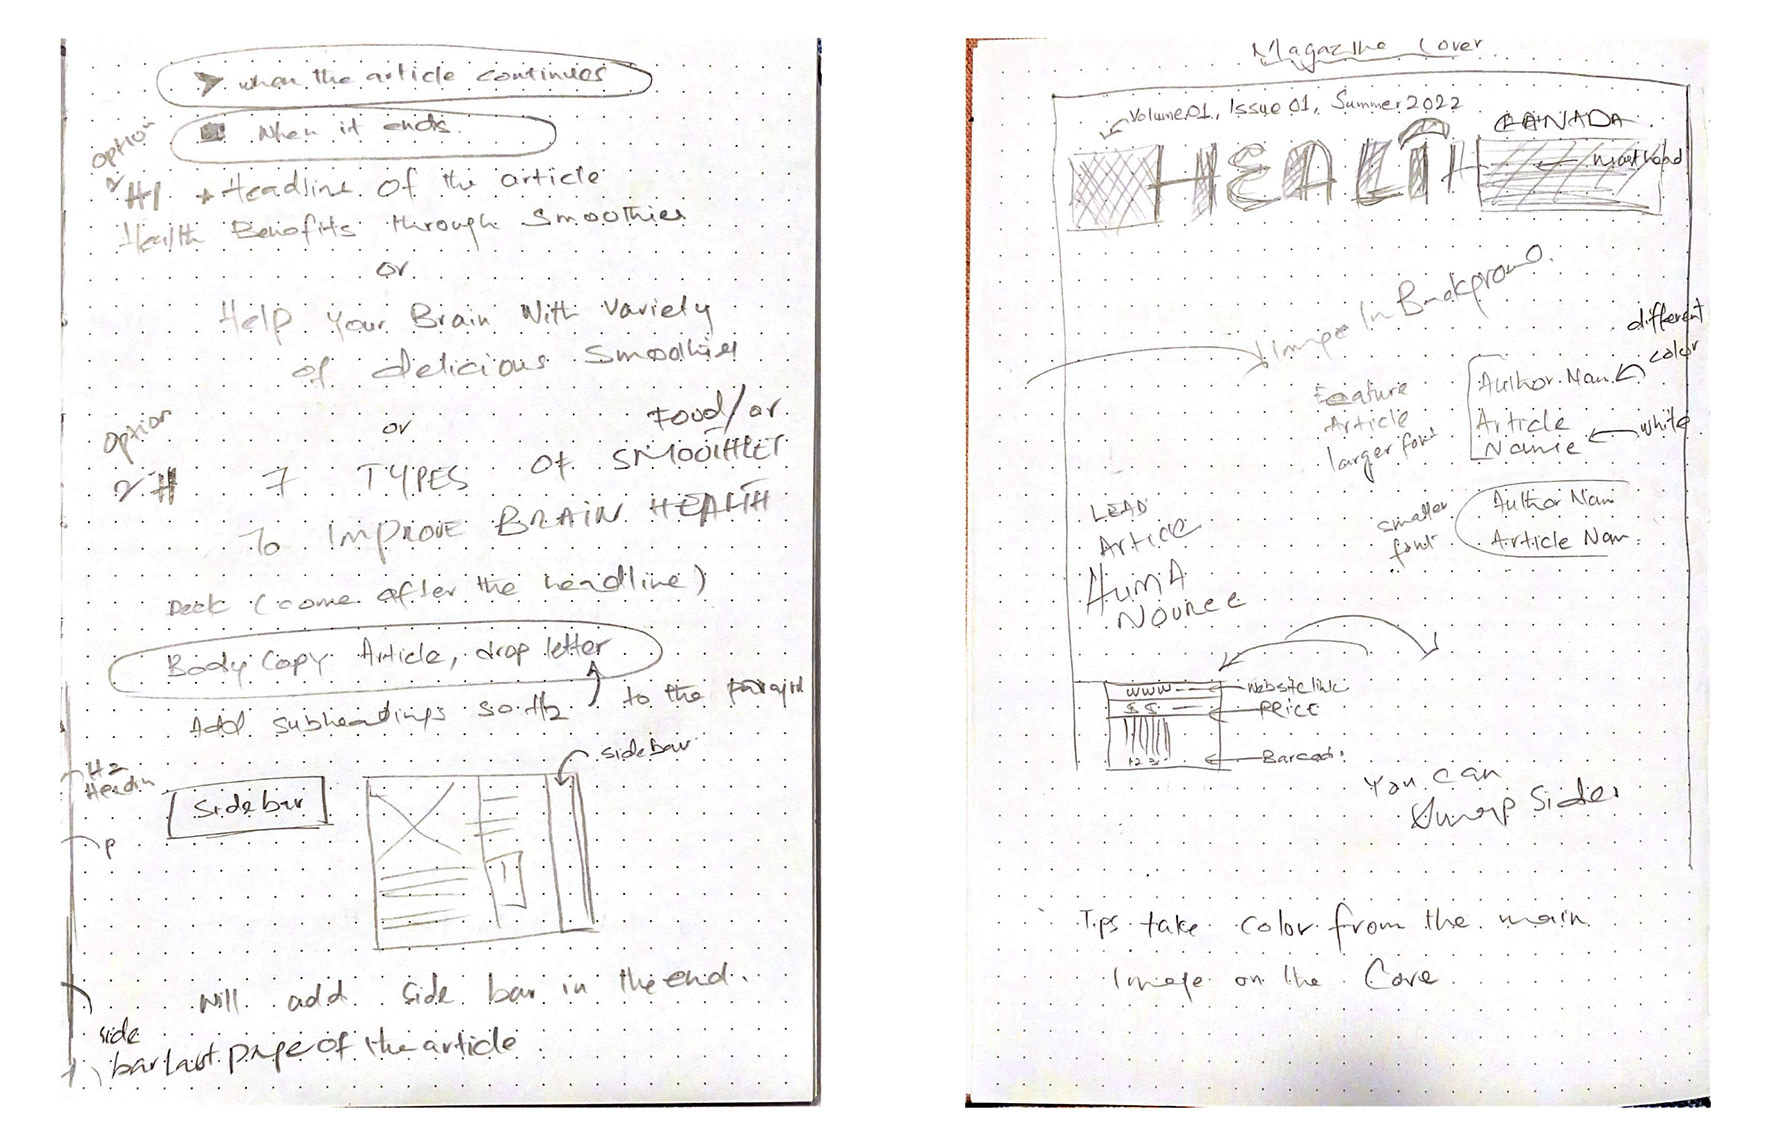 when the article continues
When it ends.
option
2 H1 * Headline of the article
Health Benefits through Smoothies
or
Help Your Brain With variety
of delicious Smoothies
option
or
Food/or
2 # 7 TYPES OF SMOOTHIES
To IMPROVE BRAIN HEALTH
Deck (come after the headline)
Body Copy Article, drop letter
Add subheadings so H2 to the
H2
Headin
p
Sidebar
sidebar
Will add side bar in the end.
side
bar last page of the article
Magazine Cover
Volume 01, Issue 01, Summer 2022
CANADA
HEALTH
masthead
Image In Background
different
color
Feature
Article
larger font
Author Nam
Article
Name
white
smaller
font
Author Nam
Article Nam.
LEAD
Article
HUMA
www
website link
$ $
PRICE
123
Barcod
You can
Swap Sides
Tips take color from the main
Image on the Cove